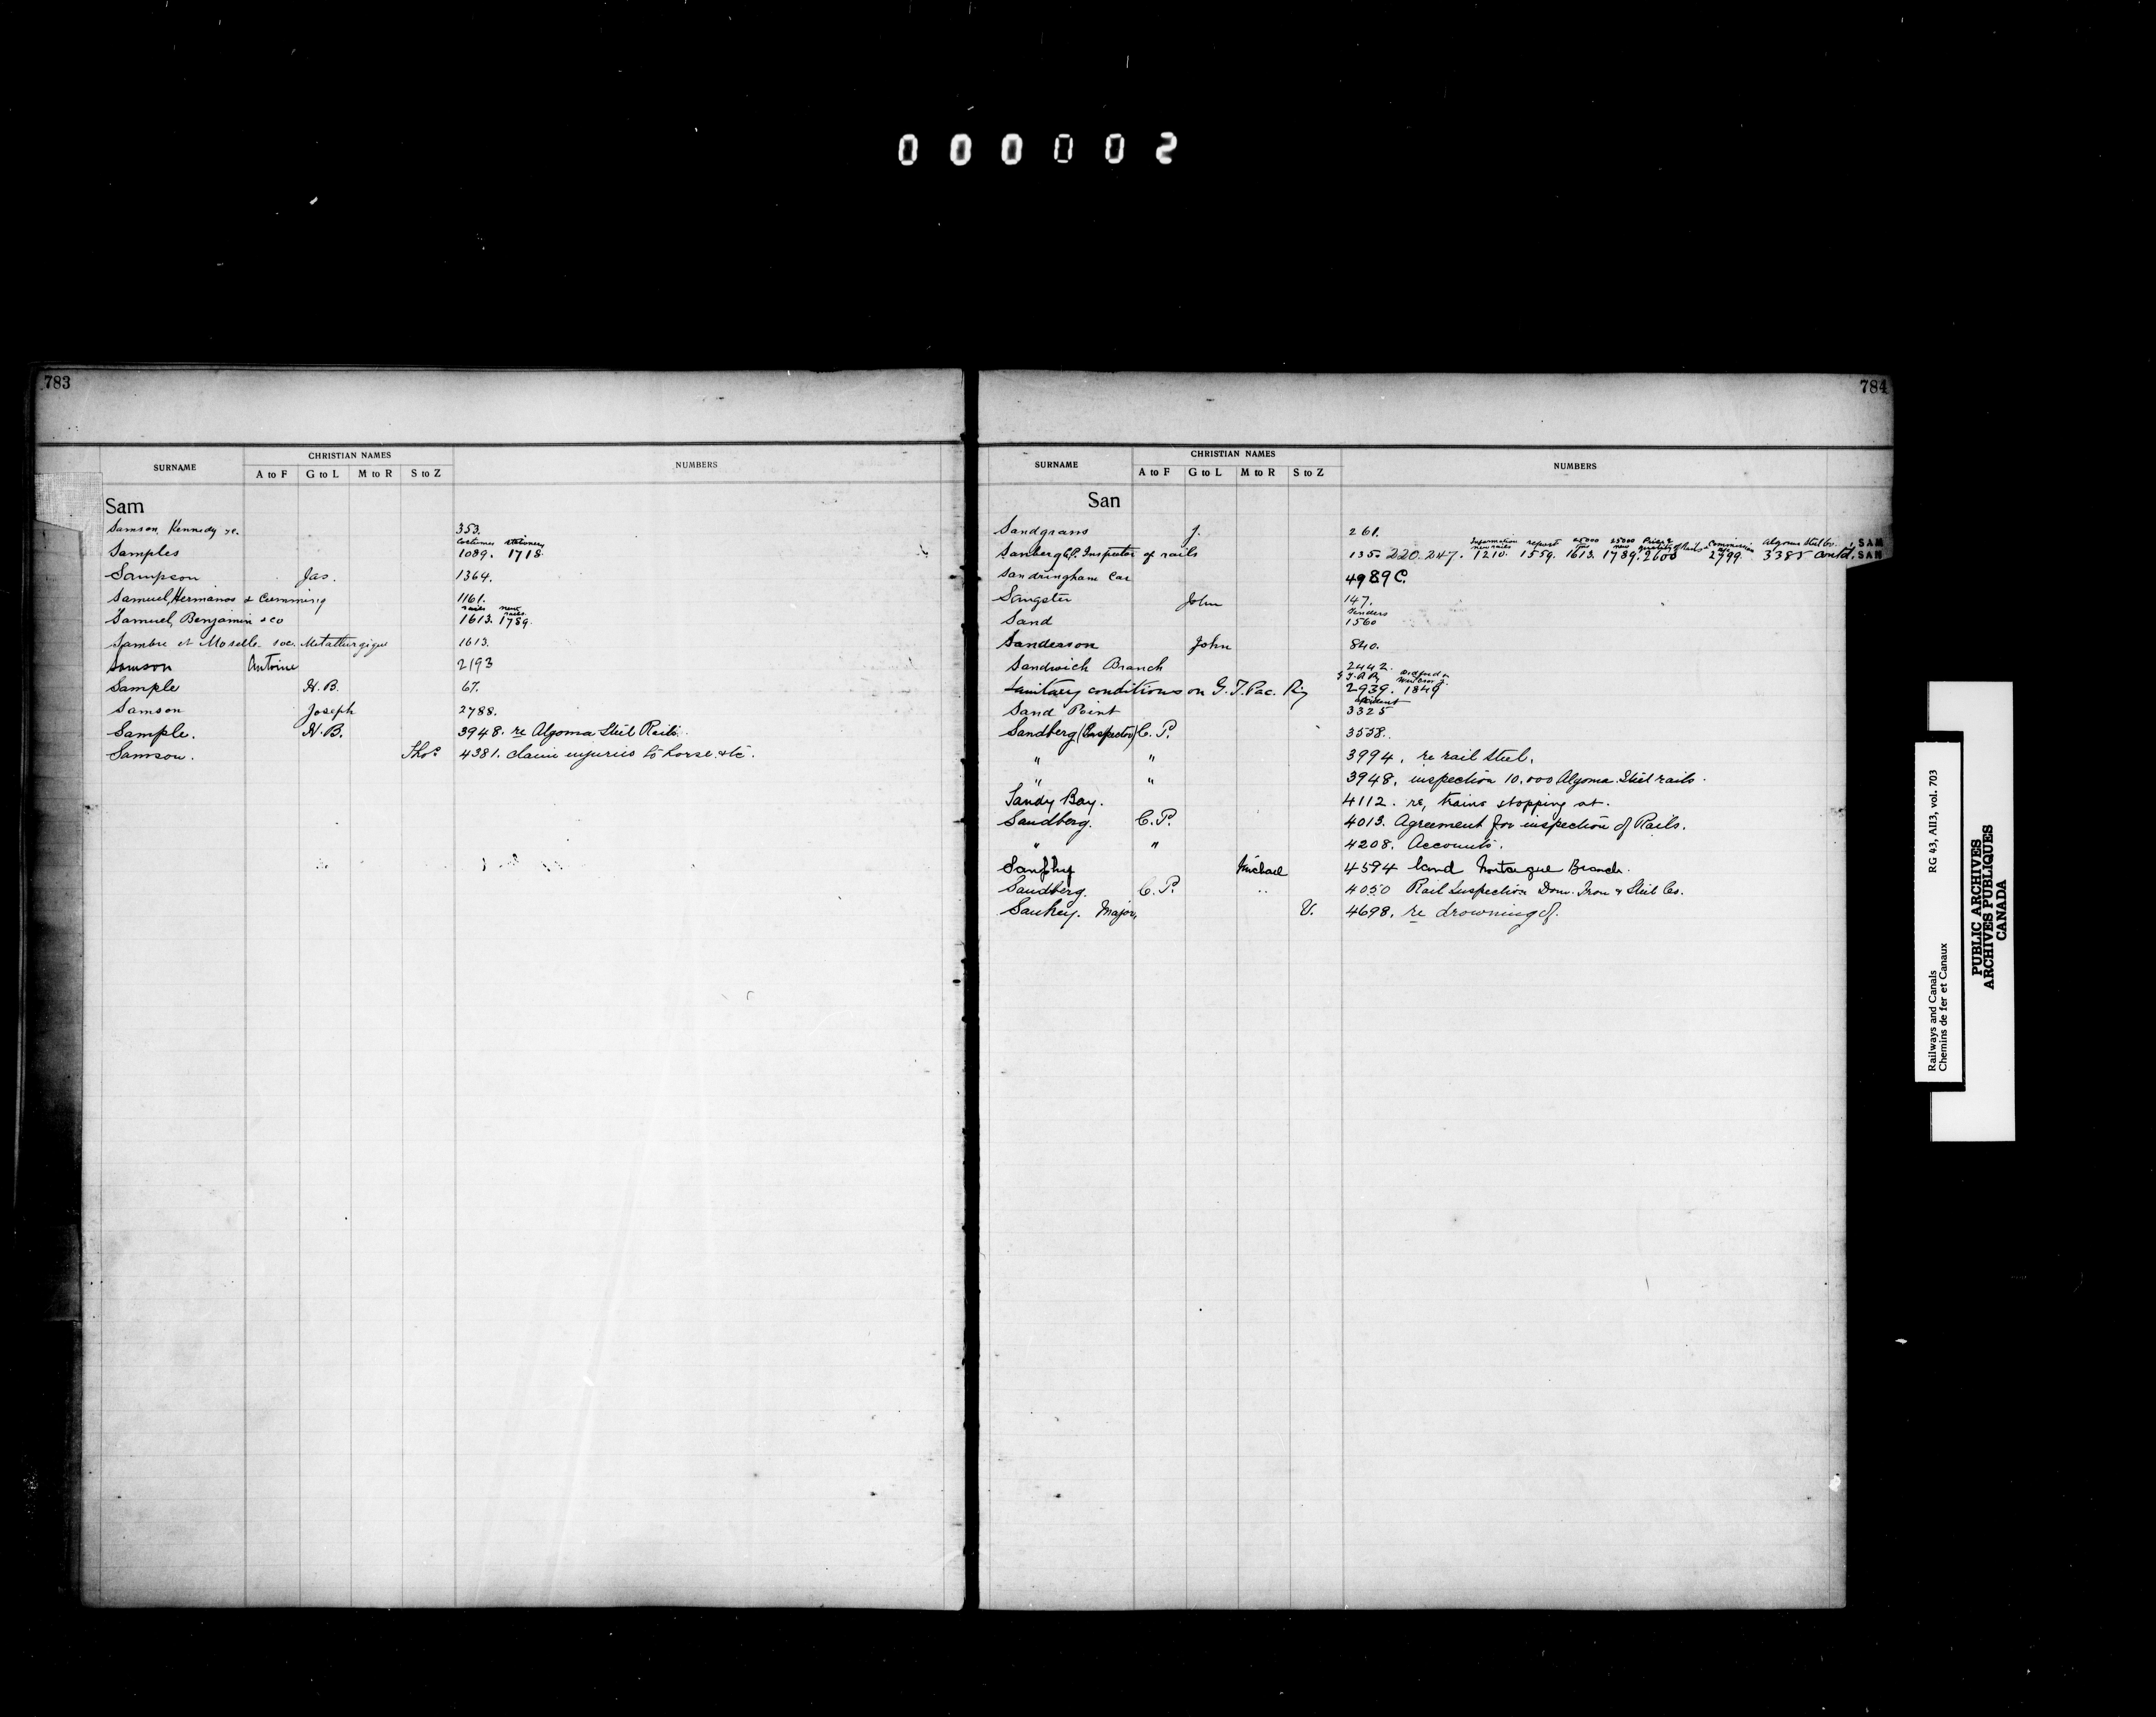 000002
783
SURNAME CHRISTIAN NAMES NUMBERS
A to F G to L M to R S to Z
Sam
Samson, Kennedy &c. 353.
Costumes stationery
Samples 1089. 1718.
Sampson Jas. 1364.
Samuel, Hermanos & Cumming 1161.
rails new rails
Samuel, Benjamin & co 1613. 1789.
Sambre et Moselle soc. Metallurgique 1613.
Samson Antoine 2193
Sample H.B. 67.
Samson Joseph 2788.
Sample. H.B. 3948. re Algoma Steel Rails.
Samson. Thos 4381. claim injuries to horse. etc.
784
SURNAME CHRISTIAN NAMES NUMBERS
A to F G to L M to R S to Z
San
Sandgrass J. 261.
Information new rails report 25000 25000 new Price & quality of Rails Commission Algoma Steel Co. SAM
Sanberg C.P. Inspector of rails 135. 220. 247. 1210. 1559. 1613. 1789. 2600 2799. 3385 Contd. SAN
Sandringham Car 4989C.
Sangster John 147.
Tenders
Sand 1560
Sanderson John 840.
Sandwich Branch 2442.
Sanitary conditions on G.T.Pac. Ry 2939. 1849
Sand Point 3325
Sandberg (Inspector) C.P. 3558.
" " 3994. re rail steel.
" " 3948. inspection 10,000 Algoma Steel rails.
Sandy Bay. 4112. re, trains stopping at.
Sandberg. C.P. 4013. Agreement for inspection of Rails.
" " 4208. Accounts.
Michael 4594 land Montague Branch.
Sandberg. C.P. 4050 Rail Inspection Dom. Iron & Steel Co.
Sankey. Major, V. 4698. re drowning of.
Railways and Canals RG 43, AII3, vol. 703
Chemins de fer et Canaux
PUBLIC ARCHIVES
ARCHIVES PUBLIQUES
CANADA